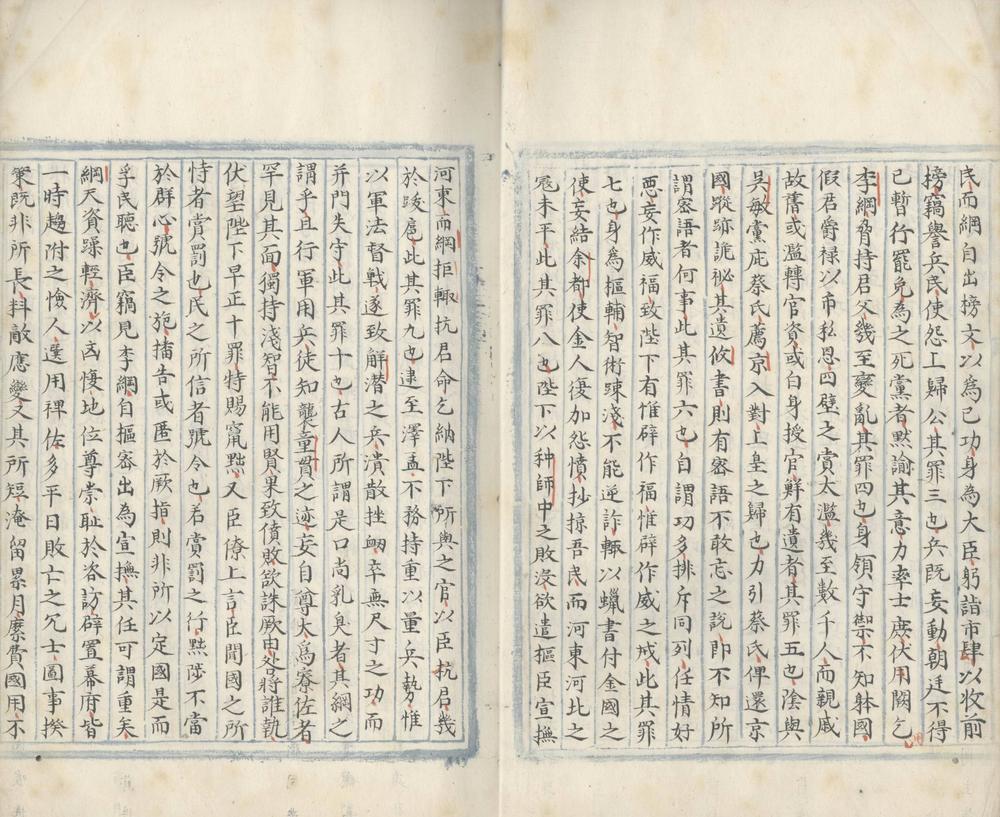 民而綱自出榜文以為己功身為大臣躬詣市肆以收前
榜竊譽兵民使怨上歸公其罪三也兵既妄動朝廷不得
已暫行罷免為之死黨者黙諭其意力率士庶伏用闕乞
李綱脅持君父幾至變亂其罪四也身領守禦不知躰國
假君爵禄以市私恩四壁之賞太濫幾至數千人而親戚
故舊或濫轉官資或白身授官鮮有遺者其罪五也隂與
吳敏黨庇蔡氏薦京入對上皇之歸也力引蔡氏俾還京
國蹤跡詭祕其遺攸書則有宻語不敢忘之説即不知所
謂宻語者何事此其罪六也自謂功多排斥同列任情好
惡妄作威福致陛下有惟辟作福惟辟作威之戒此其罪
七也身為樞輔智術踈淺不能逆詐輙以蠟書付金國之
使妄結余都使金人復加怨憤抄掠吾民而河東河北之
冦未平此其罪八也陛下以种師中之敗没欲遣樞臣宣撫
河東而綱拒輙抗君命乞納陛下所與之官以臣抗君幾
於跋扈此其罪九也逮至澤孟不務持重以量兵勢惟
以軍法督戰遂致解潜之兵潰散挫衂卒無尺寸之功而
并門失守此其罪十也古人所謂是口尚乳臭者其綱之
謂乎且行軍用兵徒知襲童貫之迹妄自尊大為寮佐者
罕見其面獨持淺智不能用賢果致僨敗欲誅厥由咎將誰執
伏望陛下早正十罪特賜竄黜又臣僚上言臣聞國之所
恃者賞罰也民之所信者號令也若賞罰之行黜陟不當
於群心號令之施播告或匿於厥指則非所以定國是而
孚民聽也臣竊見李綱自樞宻出為宣撫其任可謂重矣
綱天資躁輕濟以凶愎地位尊崇耻於咨訪辟置幕府皆
一時趨附之憸人選用稗佐多平日敗亡之冗士圖事揆
策既非所長料敵應變又其所短淹留累月縻費國用不